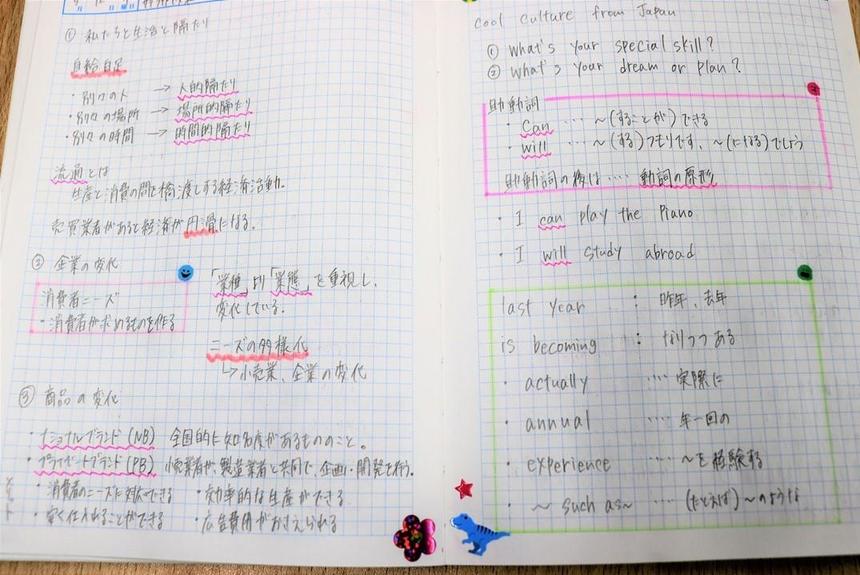 ① 私たちと生活と隔たり
自給自足
・別々の人 → 人的隔たり
・別々の場所 → 場所的隔たり
・別々の時間 → 時間的隔たり
流通とは
生産と消費の間を橋渡しする経済活動。
売買業者があると経済が円滑になる。
② 企業の変化
消費者ニーズ
・消費者が求めるものを作る
「業種」より「業態」を重視し、
変化している。
ニーズの多様化
↳小売業、企業の変化
③ 商品の変化
・ナショナルブランド(NB) 全国的に知名度があるもののこと。
・プライベートブランド(PB) 小売業者が製造業者と共同で、企画・開発を行う。
・消費者のニーズに対応できる ・効率的な生産ができる
・安く仕入れることができる ・広告費用がおさえられる
cool culture from Japan
① what's your special skill?
② what's your dream or plan?
助動詞
・can …… ~(することが)できる
・will …… ~(する)つもりです、~(になる)でしょう
助動詞の後は…… 動詞の原形
・I can play the piano
・I will study abroad
last year : 昨年、去年
is becoming : なりつつある
・actually …… 実際に
・annual …… 年一回の
・experience …… ~を経験する
・~ such as~ …… (たとえば)~のような